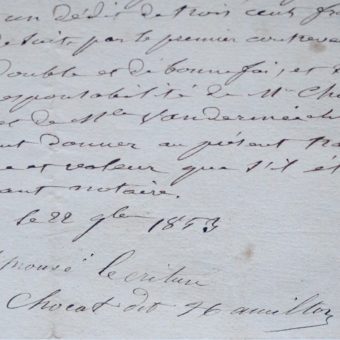 un dédit de trois cent fr
duits par le premier contreve
Double et de bonne foi, et
esponsabilité de Mr Ch
et de Mlle Vandermeich
nt donner au présent tra
e et valeur que s'il ét
ant notaire.
le 22 9bre 1853
prouvé l'écriture
Chocat dit Hamilton